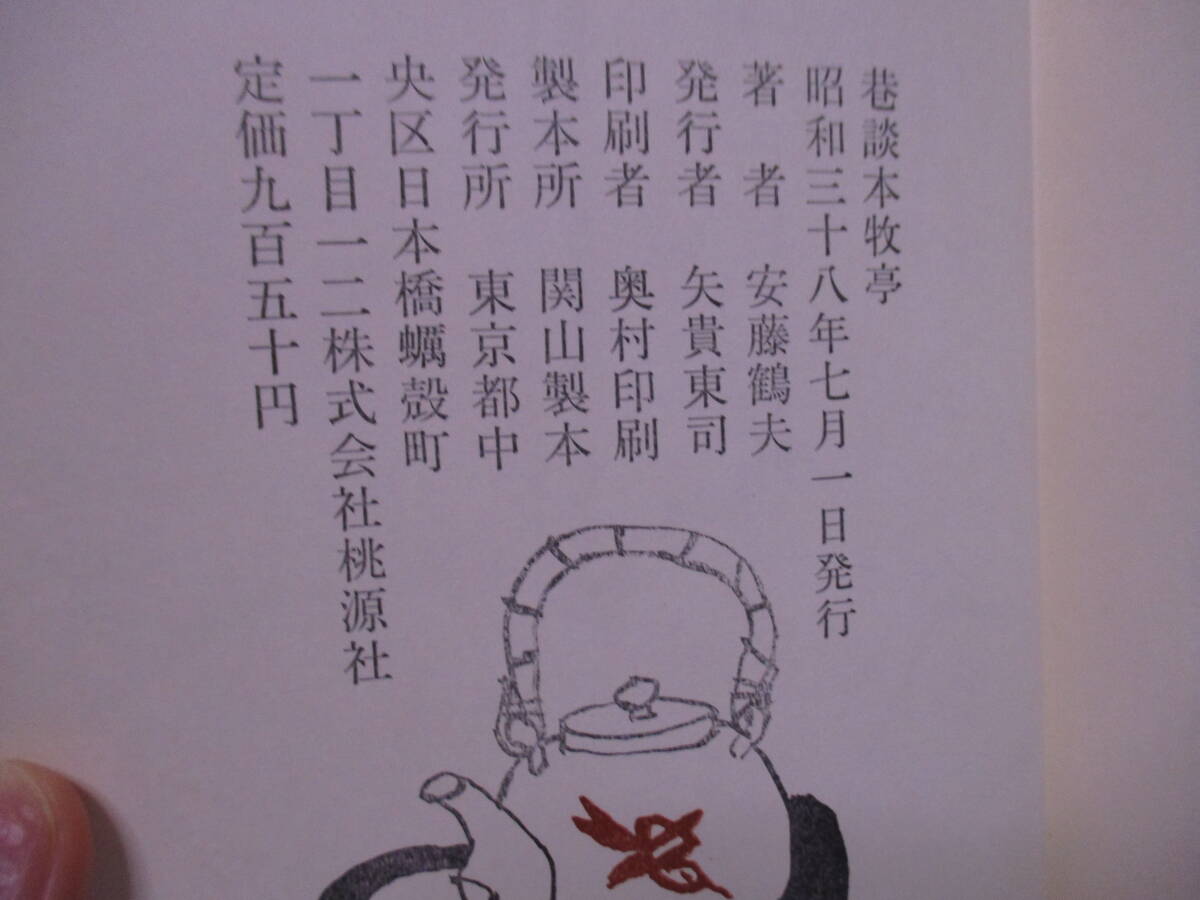 巷談本牧亭
昭和三十八年七月一日発行
著者 安藤鶴夫
発行者 矢貴東司
印刷者 奥村印刷
製本所 関山製本
発行所 東京都中
央区日本橋蠣殻町
一丁目一二株式会社桃源社
定価九百五十円